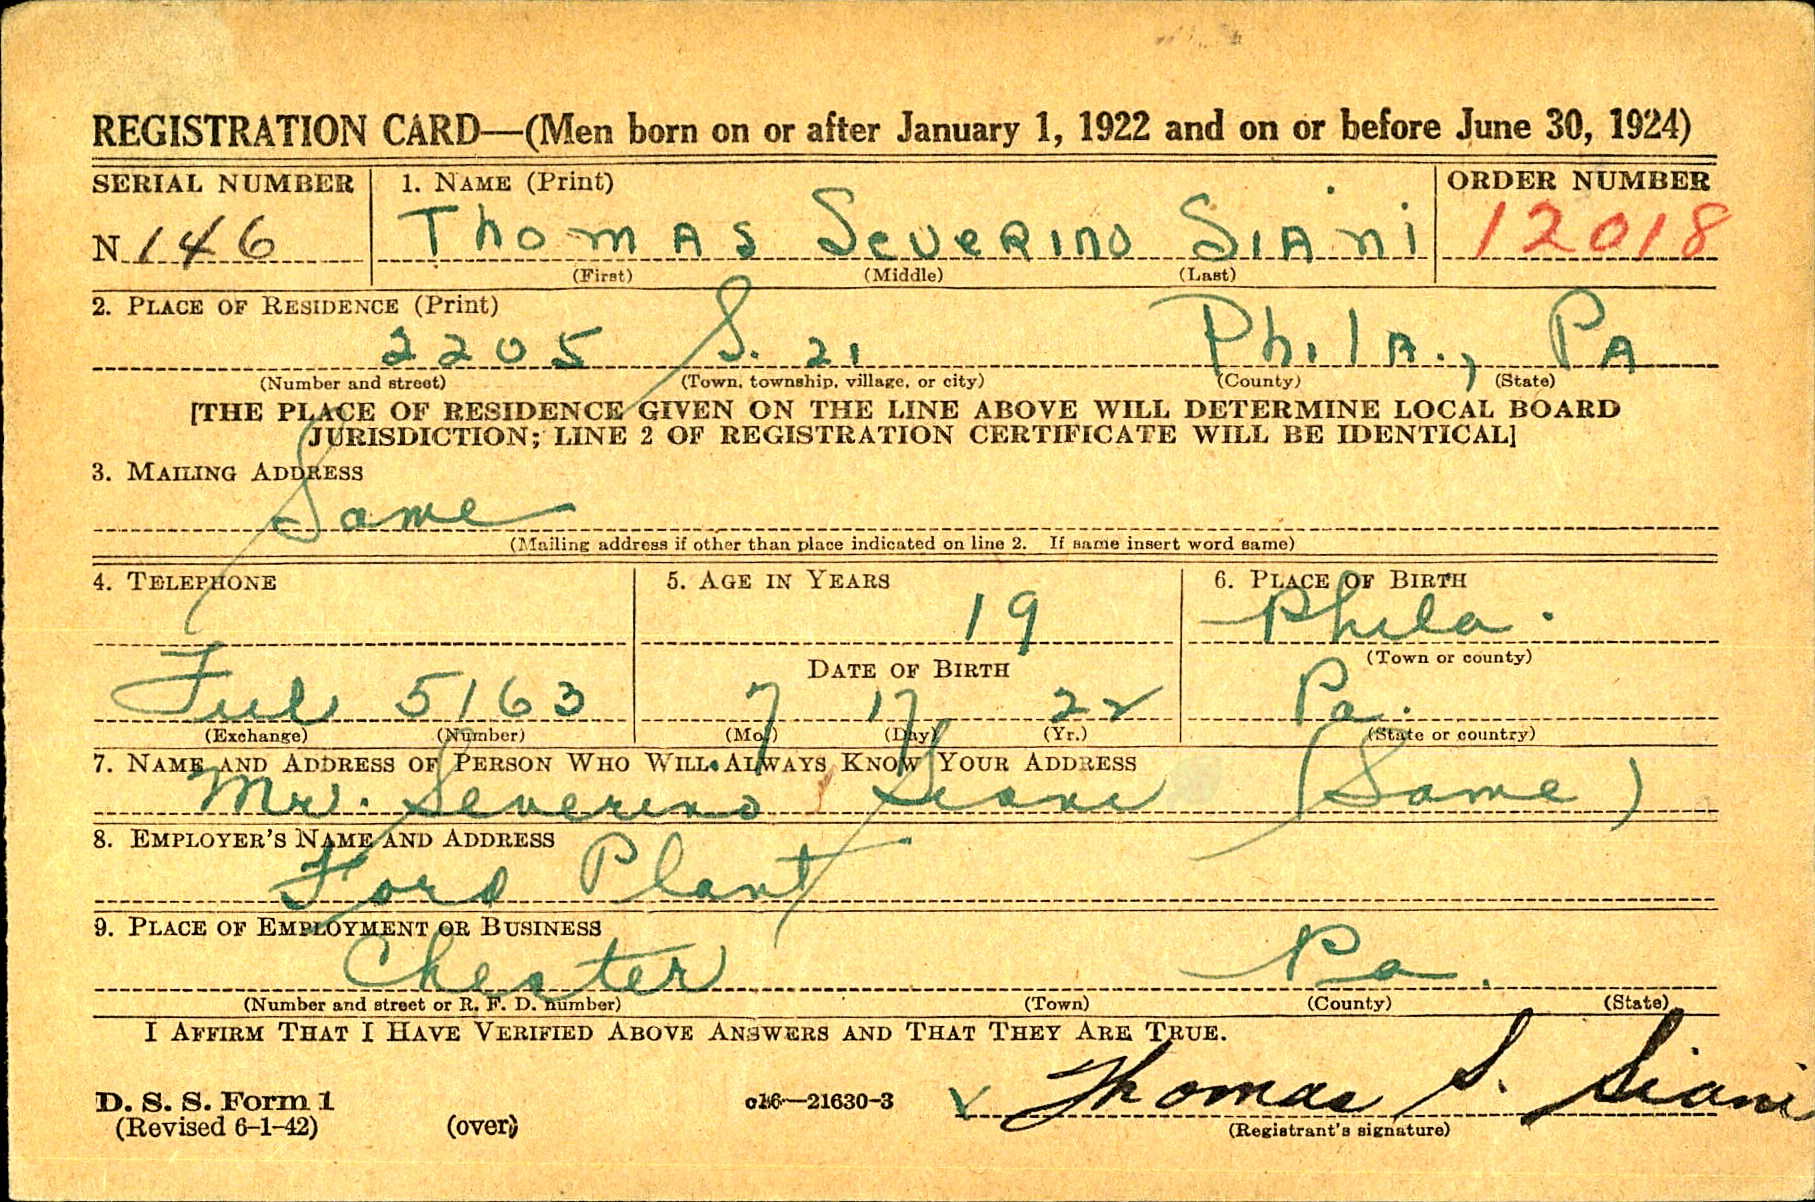 REGISTRATION CARD—(Men born on or after January 1, 1922 and on or before June 30, 1924)
SERIAL NUMBER 1. NAME (Print) ORDER NUMBER
N 146 Thomas Severino Siani 12018
(First) (Middle) (Last)
2. PLACE OF RESIDENCE (Print)
2205 S. 21 Phila., Pa
(Number and street) (Town, township, village, or city) (County) (State)
[THE PLACE OF RESIDENCE GIVEN ON THE LINE ABOVE WILL DETERMINE LOCAL BOARD
JURISDICTION; LINE 2 OF REGISTRATION CERTIFICATE WILL BE IDENTICAL]
3. MAILING ADDRESS
Same
(Mailing address if other than place indicated on line 2. If same insert word same)
4. TELEPHONE 5. AGE IN YEARS 6. PLACE OF BIRTH
19 Phila.
DATE OF BIRTH (Town or county)
Ful 5163 7 17 22 Pa.
(Exchange) (Number) (Mo.) (Day) (Yr.) (State or country)
7. NAME AND ADDRESS OF PERSON WHO WILL ALWAYS KNOW YOUR ADDRESS
Mr. Severino Siani (Same)
8. EMPLOYER'S NAME AND ADDRESS
Ford Plant
9. PLACE OF EMPLOYMENT OR BUSINESS
Chester Pa.
(Number and street or R. F. D. number) (Town) (County) (State)
I AFFIRM THAT I HAVE VERIFIED ABOVE ANSWERS AND THAT THEY ARE TRUE.
Thomas S. Siani
D. S. S. Form 1 16—21630-3
(Revised 6-1-42) (over) (Registrant's signature)